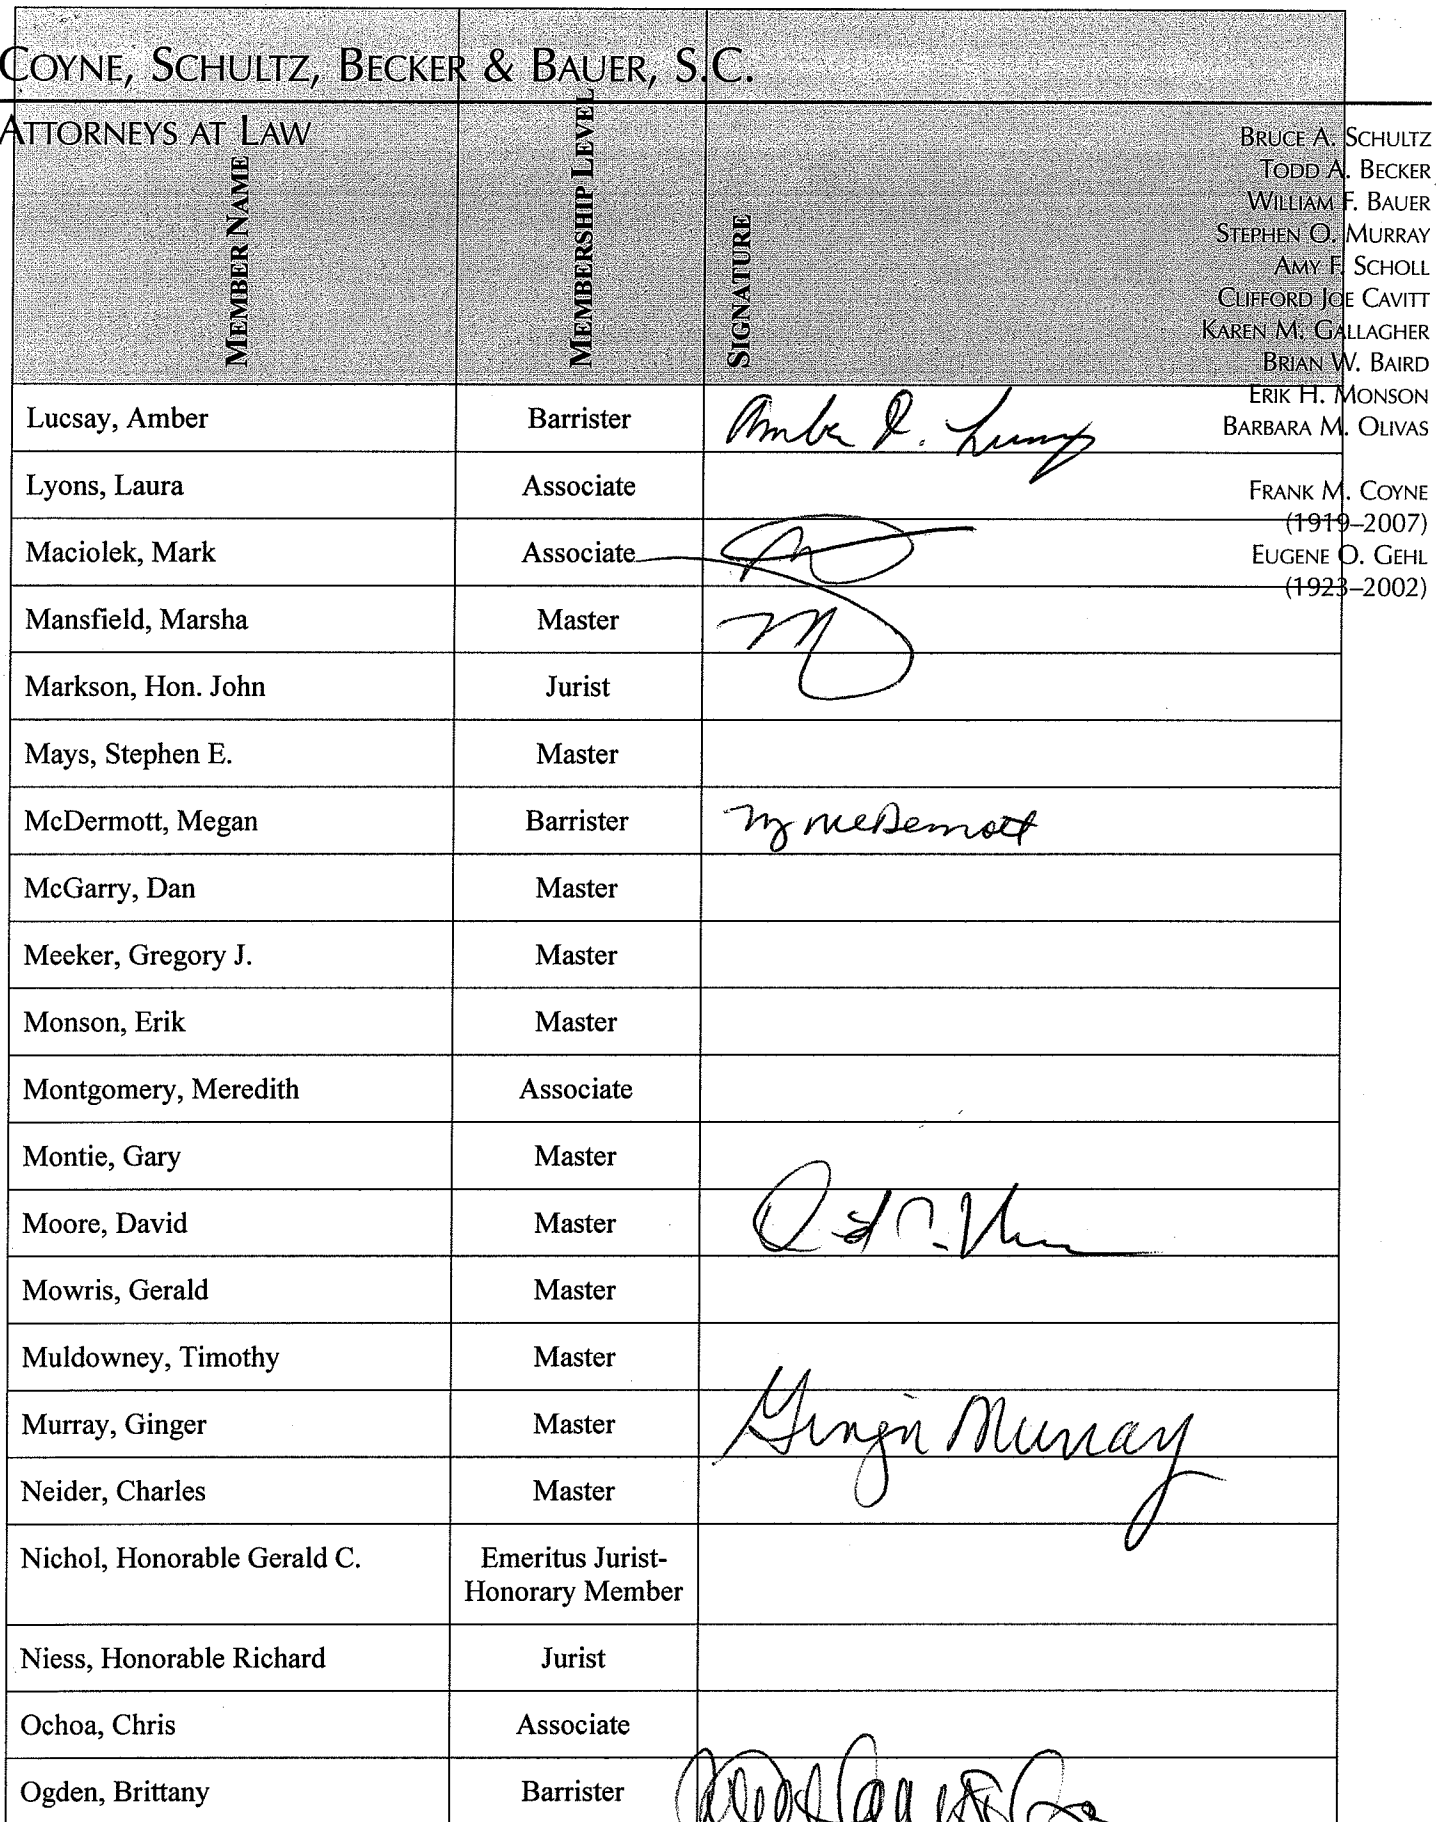 COYNE, SCHULTZ, BECKER & BAUER, S.C.
ATTORNEYS AT LAW
BRUCE A. SCHULTZ
TODD A. BECKER
WILLIAM F. BAUER
STEPHEN O. MURRAY
AMY F. SCHOLL
CLIFFORD JOE CAVITT
KAREN M. GALLAGHER
BRIAN W. BAIRD
ERIK H. MONSON
BARBARA M. OLIVAS
FRANK M. COYNE
(1919–2007)
EUGENE O. GEHL
(1923–2002)
MEMBER NAME MEMBERSHIP LEVEL SIGNATURE
Lucsay, Amber Barrister Amber
Lyons, Laura Associate
Maciolek, Mark Associate
Mansfield, Marsha Master
Markson, Hon. John Jurist
Mays, Stephen E. Master
McDermott, Megan Barrister McDermott
McGarry, Dan Master
Meeker, Gregory J. Master
Monson, Erik Master
Montgomery, Meredith Associate
Montie, Gary Master
Moore, David Master
Mowris, Gerald Master
Muldowney, Timothy Master
Murray, Ginger Master Ginger Murray
Neider, Charles Master
Nichol, Honorable Gerald C. Emeritus Jurist-
Honorary Member
Niess, Honorable Richard Jurist
Ochoa, Chris Associate
Ogden, Brittany Barrister